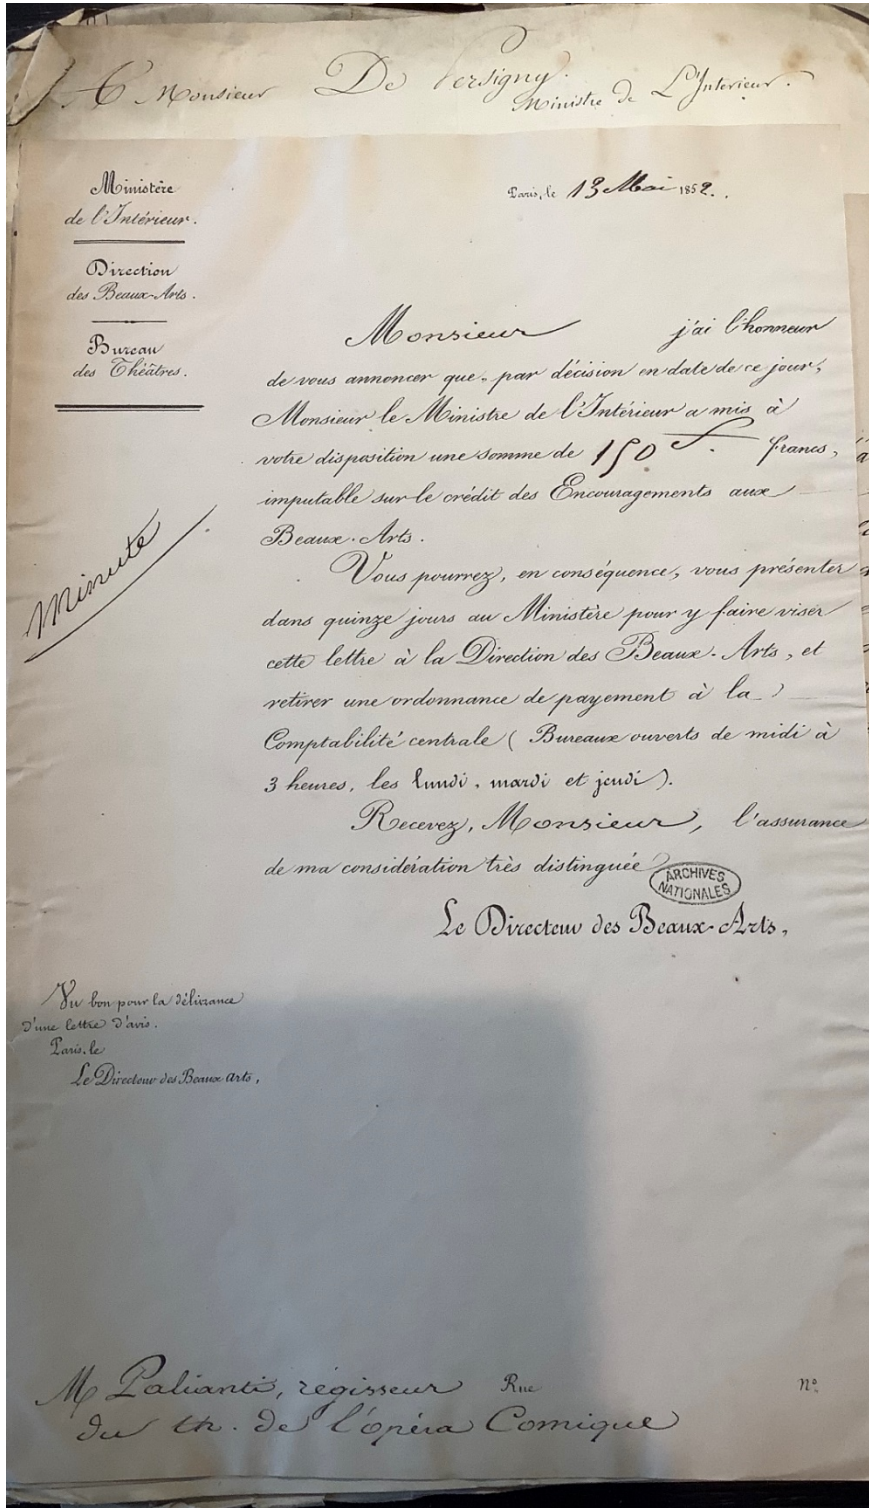 A Monsieur De Persigny.
Ministre de L'Interieur.
Ministère
de l'Intérieur.
Direction
des Beaux-Arts.
Bureau
des Théâtres.
Paris, le 13 Mai 1852.
Minute
Monsieur j'ai l'honneur
de vous annoncer que, par décision en date de ce jour,
Monsieur le Ministre de l'Intérieur a mis à
votre disposition une somme de 150 f. francs,
imputable sur le crédit des Encouragements aux
Beaux-Arts.
Vous pourrez, en conséquence, vous présenter
dans quinze jours au Ministère pour y faire viser
cette lettre à la Direction des Beaux-Arts, et
retirer une ordonnance de payement à la
Comptabilité centrale (Bureaux ouverts de midi à
3 heures, les lundi, mardi et jeudi).
Recevez, Monsieur, l'assurance
de ma considération très distinguée
ARCHIVES
NATIONALES
Le Directeur des Beaux-Arts,
Vu bon pour la délivrance
d'une lettre d'avis.
Paris, le
Le Directeur des Beaux Arts,
M Palianti, régisseur Rue nº
du th. de l'opéra Comique